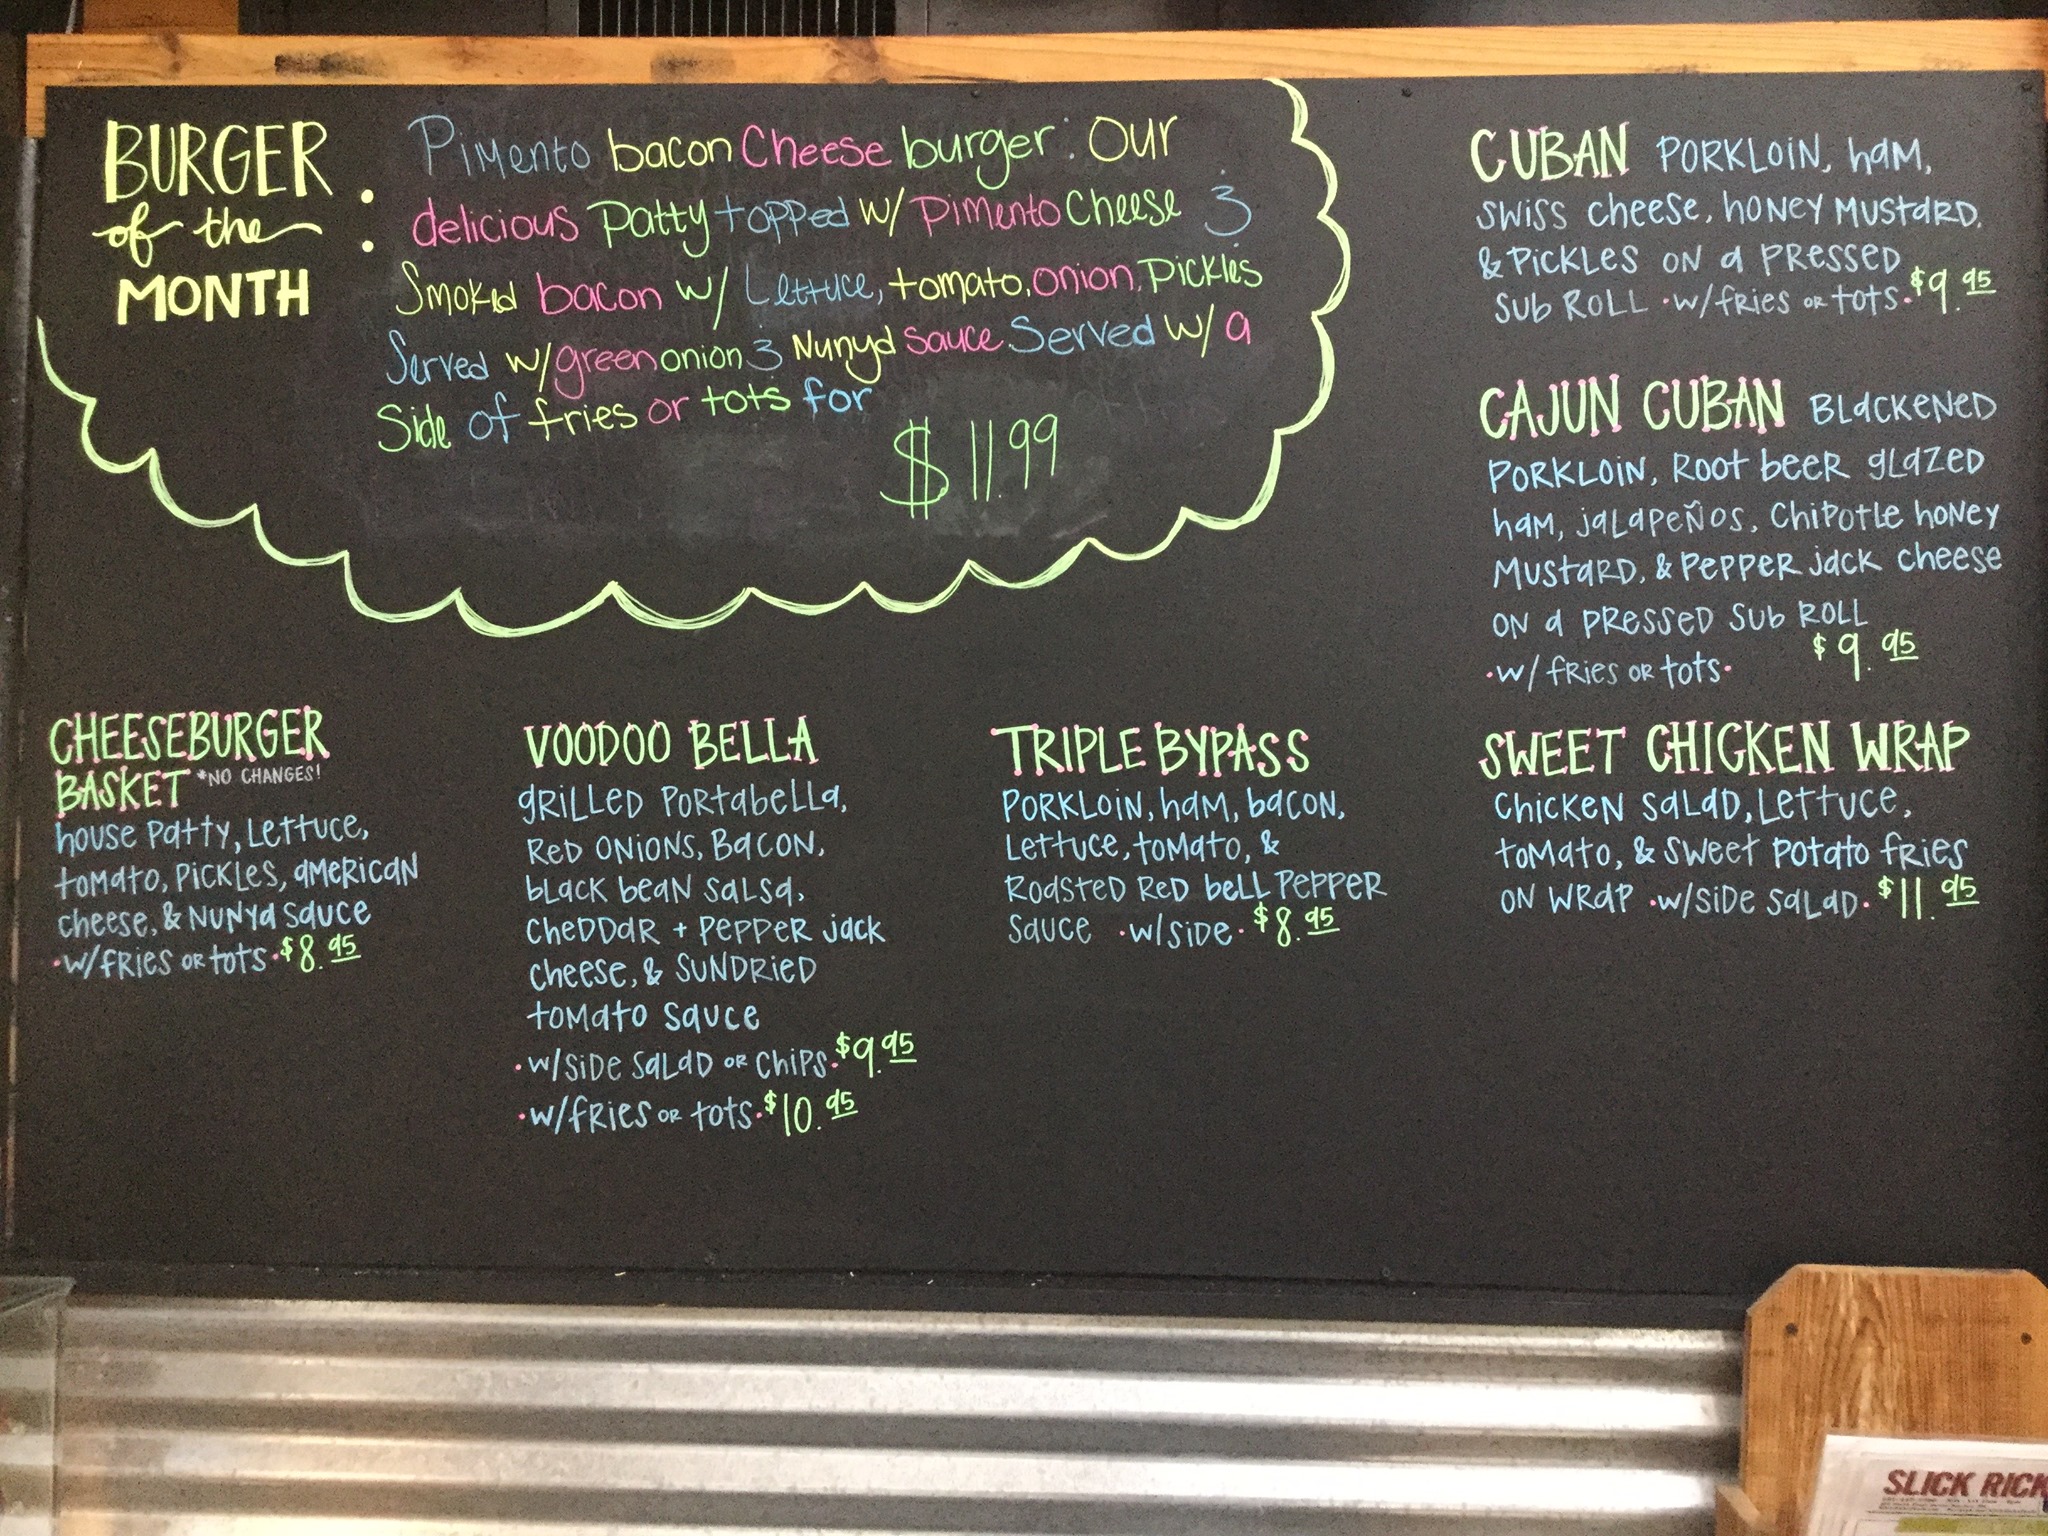 BURGER
of the
MONTH :
Pimento bacon Cheese burger: Our
delicious Patty topped w/ Pimento Cheese &
Smoked bacon w/ Lettuce, tomato, onion, Pickles
Served w/ green onion & Nunya sauce. Served w/ a
Side of fries or tots for
$11.99
CUBAN PORKLOIN, HAM,
SWISS CHEESE, HONEY MUSTARD,
& PICKLES ON A PRESSED
SUB ROLL • W/FRIES OR TOTS • $9.95
CAJUN CUBAN BLACKENED
PORKLOIN, ROOT BEER GLAZED
HAM, JALAPEÑOS, CHIPOTLE HONEY
MUSTARD, & PEPPER JACK CHEESE
ON A PRESSED SUB ROLL
• W/ FRIES OR TOTS • $9.95
CHEESEBURGER
BASKET *NO CHANGES!
HOUSE PATTY, LETTUCE,
TOMATO, PICKLES, AMERICAN
CHEESE, & NUNYA SAUCE
• W/FRIES OR TOTS • $8.95
VOODOO BELLA
GRILLED PORTABELLA,
RED ONIONS, BACON,
BLACK BEAN SALSA,
CHEDDAR + PEPPER JACK
CHEESE, & SUNDRIED
TOMATO SAUCE
• W/SIDE SALAD OR CHIPS • $9.95
• W/FRIES OR TOTS • $10.95
TRIPLE BYPASS
PORKLOIN, HAM, BACON,
LETTUCE, TOMATO, &
ROASTED RED BELL PEPPER
SAUCE • W/SIDE • $8.95
SWEET CHICKEN WRAP
CHICKEN SALAD, LETTUCE,
TOMATO, & SWEET POTATO FRIES
ON WRAP • W/SIDE SALAD • $11.95
SLICK RICK